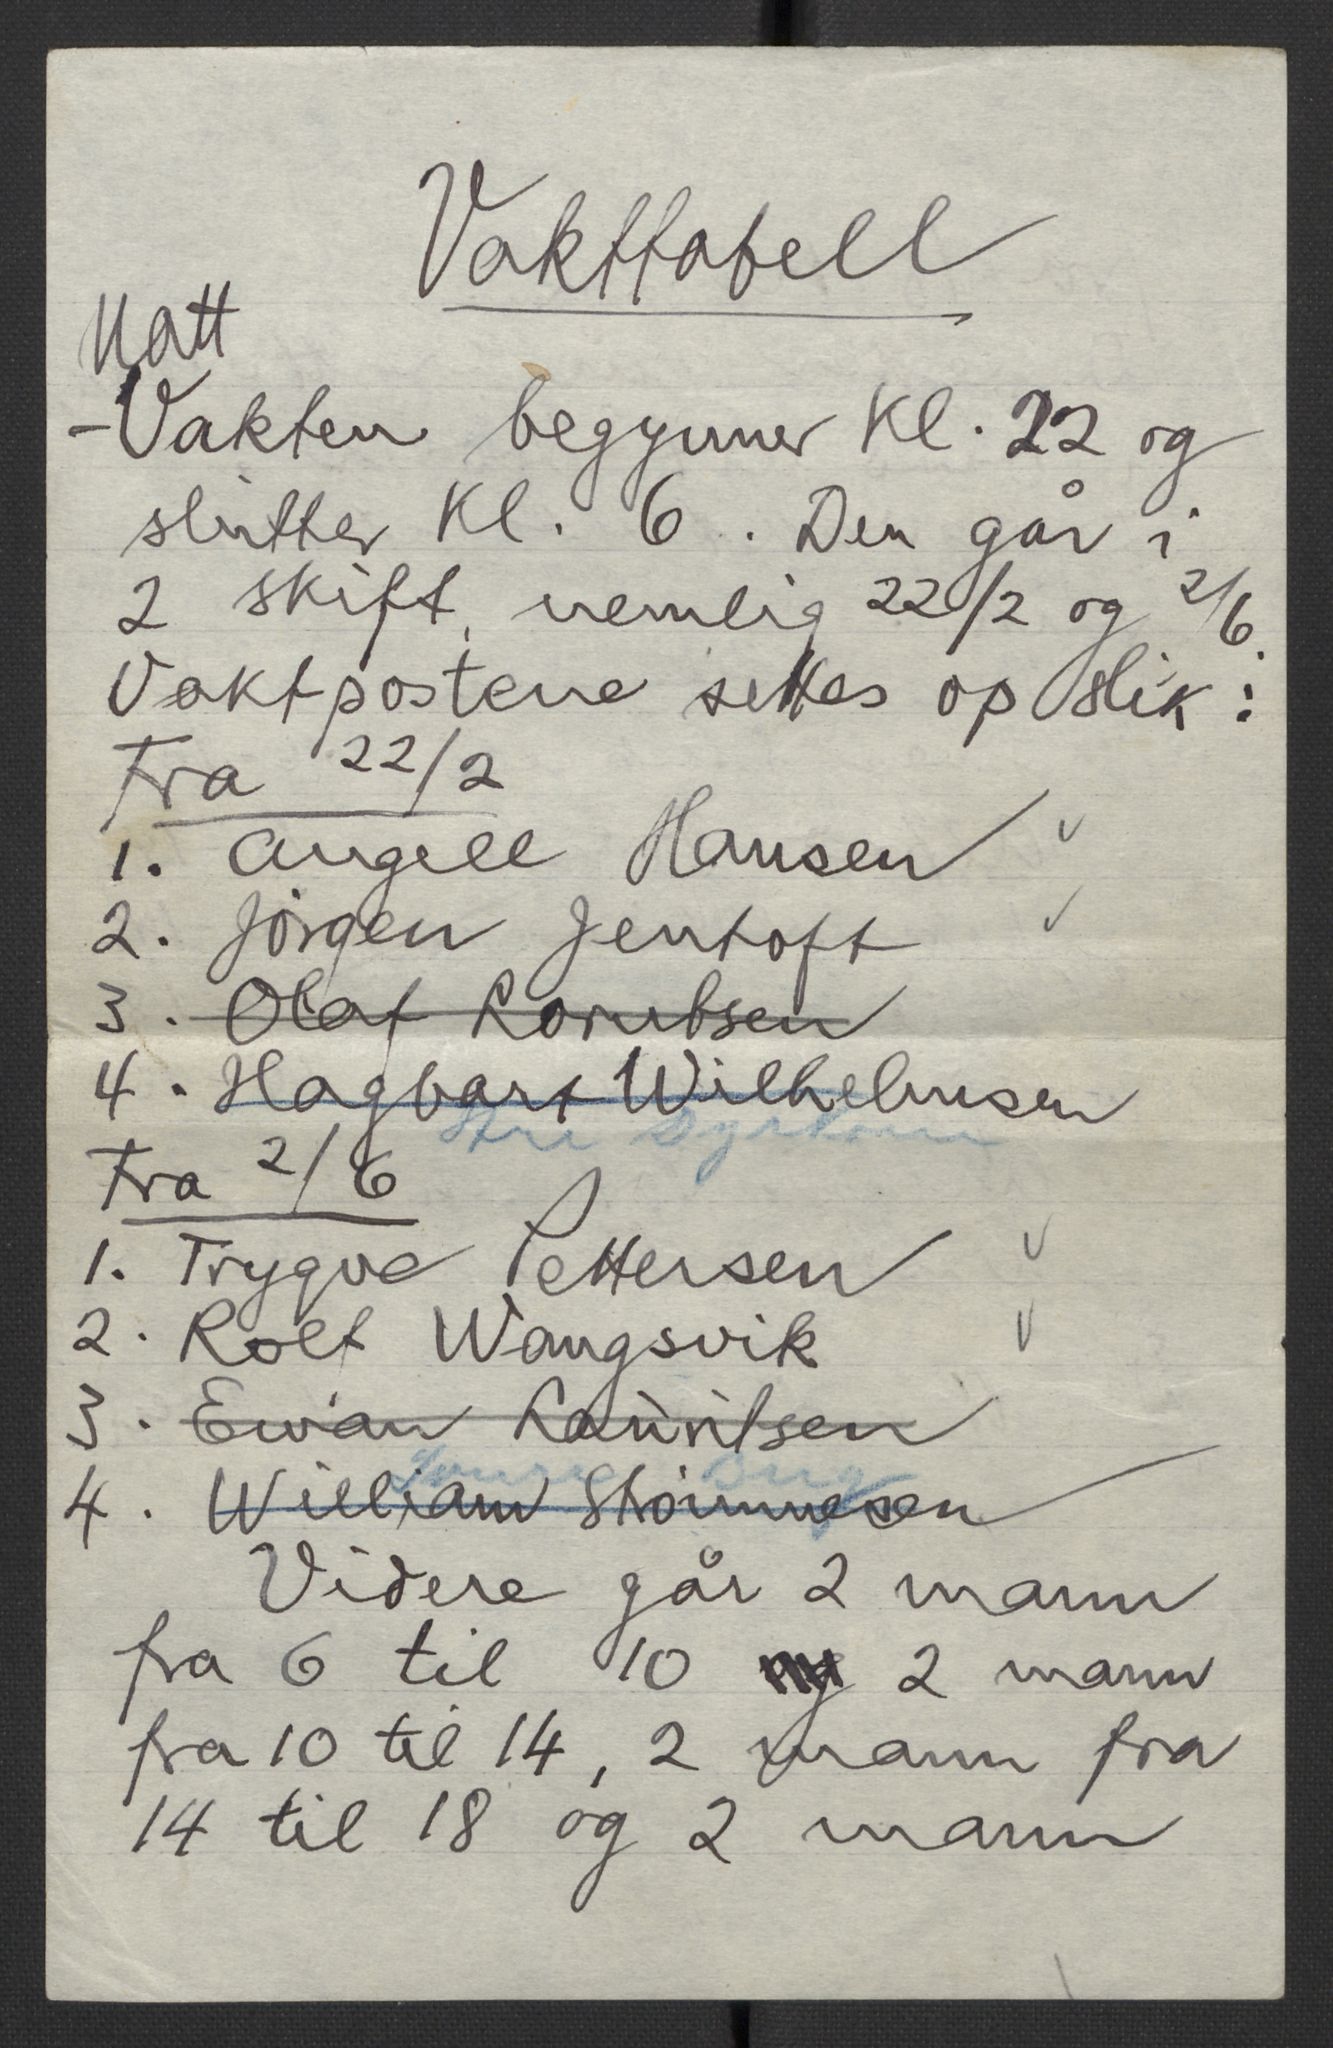 Vakttabell
Natt
-Vakten begynner Kl. 22 og
slutter Kl. 6. Den går i
2 skift, nemlig 22/2 og 2/6.
Vaktpostene settes op slik:
Fra 22/2
1. Angell Hansen v
2. Jörgen Jentoft v
3. Olaf
4. Hagbart Wilhelmsen
Fra 2/6
1. Trygve Pettersen v
2. Rolf Wangsvik v
3. Ewan Lauritsen
4. William Strömmesen
Videre går 2 mann
fra 6 til 10 2 mann
fra 10 til 14, 2 mann fra
14 til 18 og 2 mann